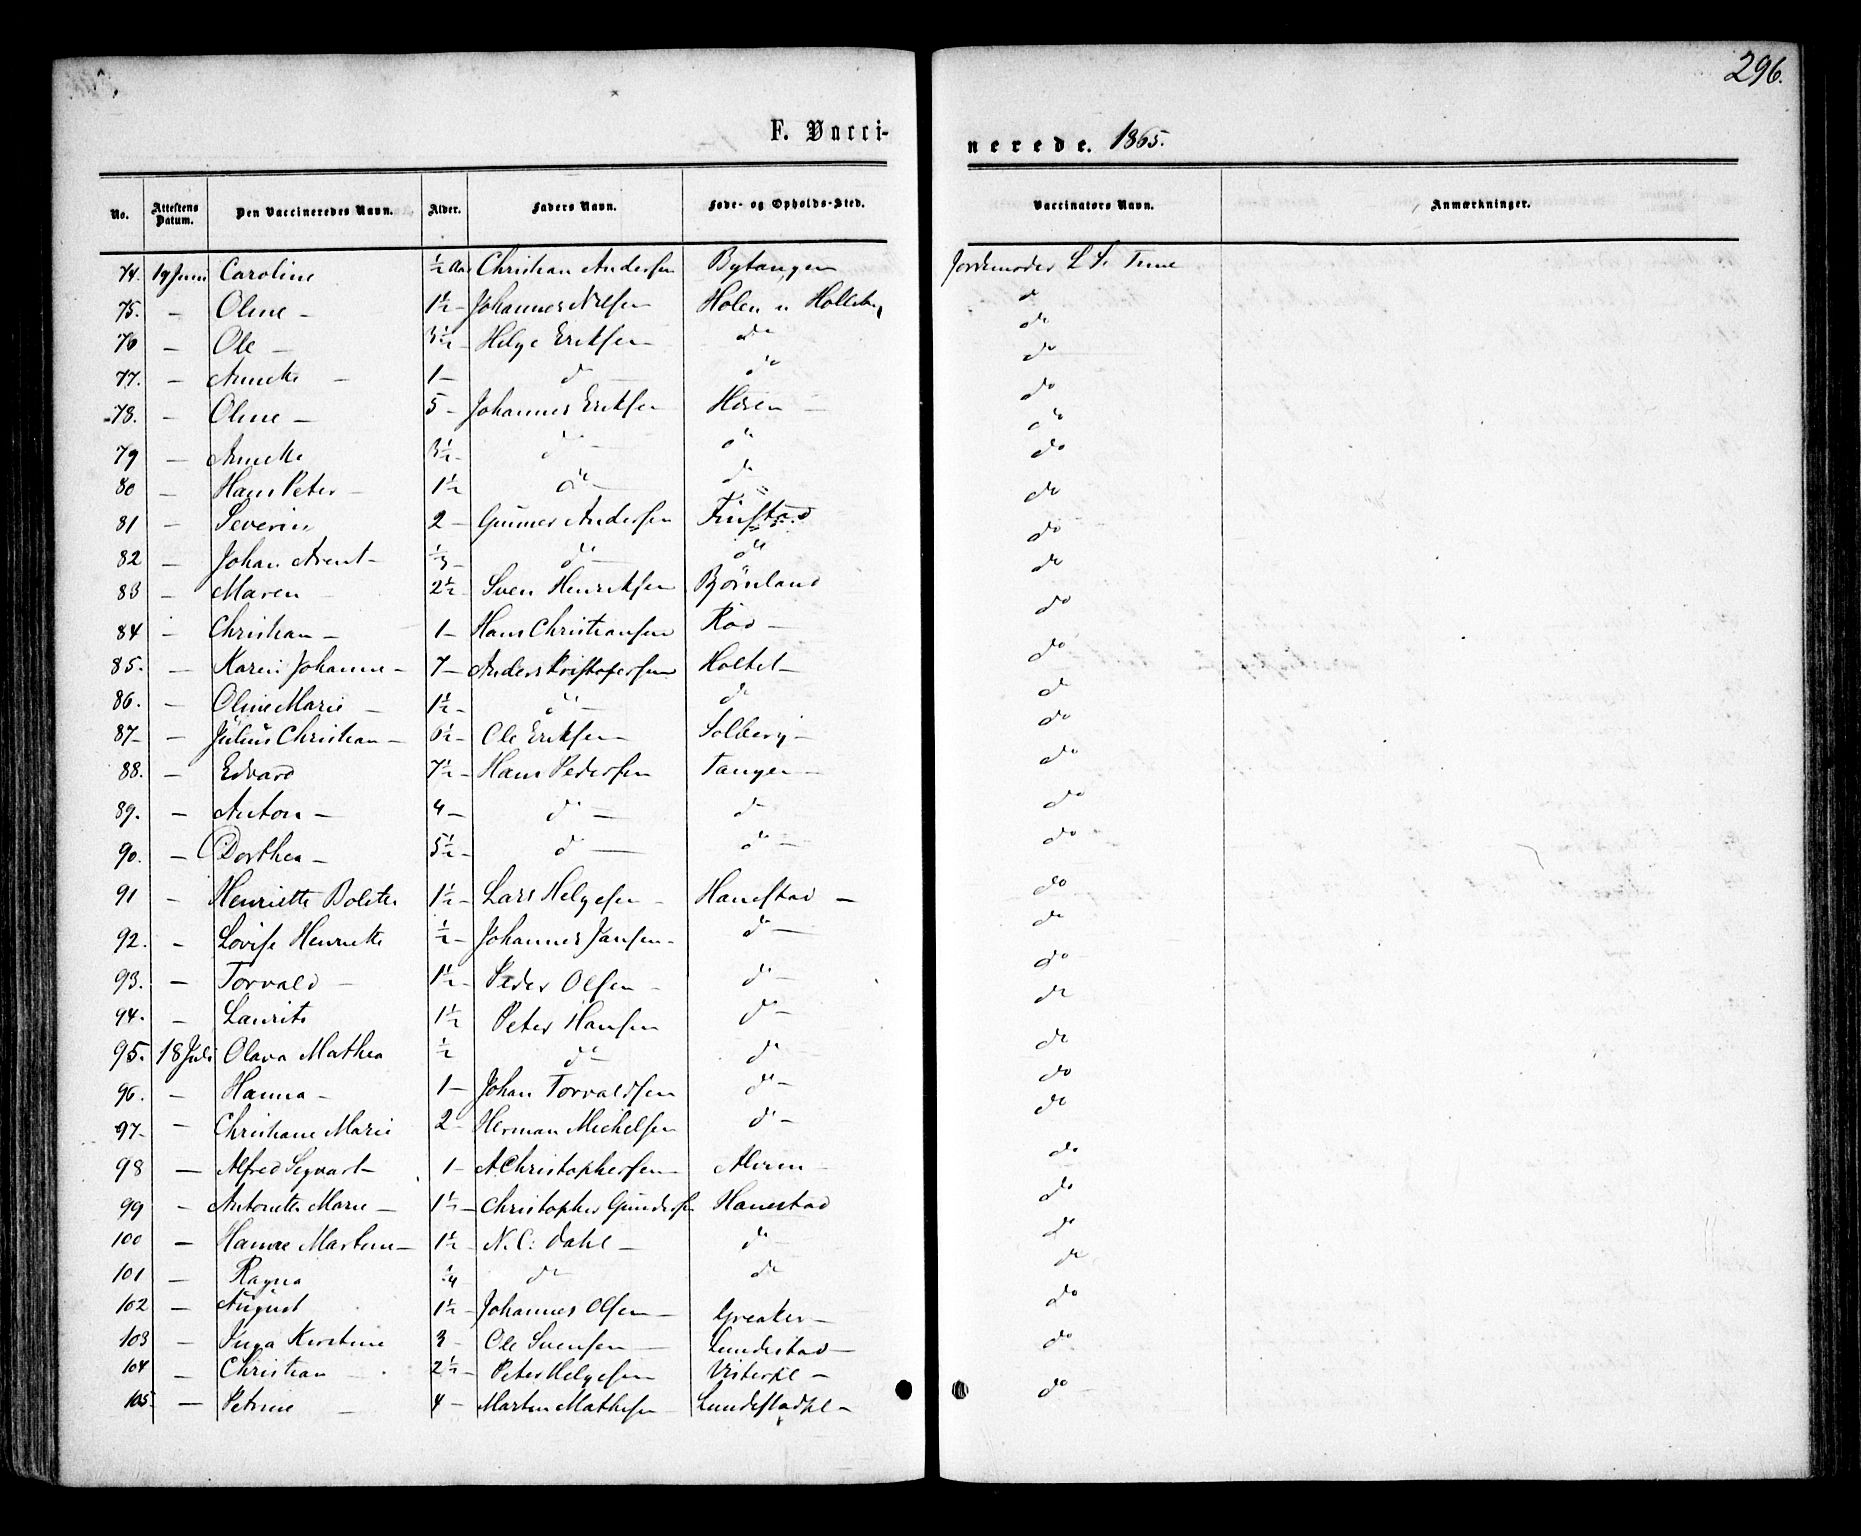 296.
F. Vacci-
nerede. 1865.
No. Attestens Datum. Den Vaccineredes Navn. Alder. Faders Navn. Føde- og Opholds-Sted. Vaccinators Navn. Anmærkninger.
74. 19 Juni Caroline ½ Aar Christian Andersen Bytangen Jordemoder L S.
75. - Oline - 1½ - Johannes Nilsen Holen u Holleby d
76 - Ole - 3½ - Helge Eriksen do do
77. - Annette - 1 - d - do do
78. - Oline - 5 - Johannes Eriksen - do
79 - Annette 3½ - do - do do
80 - Hans Peter - 1½ do - do do
81 - Severin 2 - Gunner Andersen Finstad do
82 - Johan Arent - ⅓ - do - do do
83 - Maren 2½ - Sven Henriksen Bjørnland do
84 - Christian - 1 - Hans Christiansen Röd - do
85. - Karen Johanne - 7 - Anders Kristofersen Holtet - do
86. - Oline Marie - 1½ - do - do do
87 - - Julius Christian - 6½ - Ole Eriksen - Solberg - do
88. - Edvard 7½ - Hans Pedersen Tangen - do
89. - Anton - 4 - do - do do
90. - Dorthea - 5½ - d - do - do
91 - Henriette Bolette 1½ - Lars Helgesen - Hanestad - do
92. - Lovise Henriette ½ - Johannes Jansen - do - do
93. - Torvald - 1½ - Peder Olsen - do - do
94. - Laurits 1½ Peter Hansen do - do
95. 18 Juli Olava Mathea ½ do - do do
96. - Hanna - 1 - Johan Torvaldsen do - do
97 - - Christiane Marie 2 - Herman Michelsen do - do
98 - Alfred Segvart - 1 - A Christophersen - - do
99 - Antonette Marie - 1½ - Christopher Gundersen Hanestad do
100 - Hanne Martine - 1½ - N. C. Dahl - do - do
101 - Ragna ¼ - do do do
102 - August 1½ - Johannes Olsen - Greaker - do
103 - Inga Kirstine 3 - Ole Svensen - Lundestad - do
104 - Christian 2½ - Peter Helgesen Visterpl -
105 - Petrine - 4 - Martin Mathisen Lundestadpl - do -